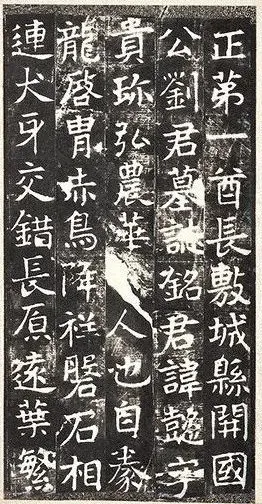 正第一酋長敷城縣開國
公劉君墓誌銘君諱懿字
貴珎弘農華人也自豢
龍啓胄赤鳥降祥磐石相
連犬牙交錯長原遠葉繁